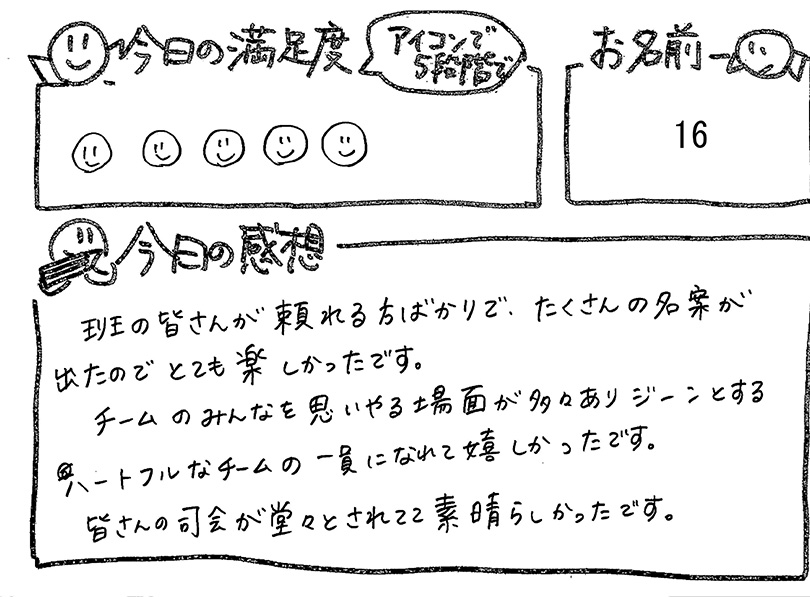 今日の満足度
アイコンで
5段階で
お名前
16
今日の感想
班の皆さんが頼れる方ばかりで、たくさんの名案が
出たのでとても楽しかったです。
チームのみんなを思いやる場面が多々ありジーンとする
ハートフルなチームの一員になれて嬉しかったです。
皆さんの司会が堂々とされてて素晴らしかったです。